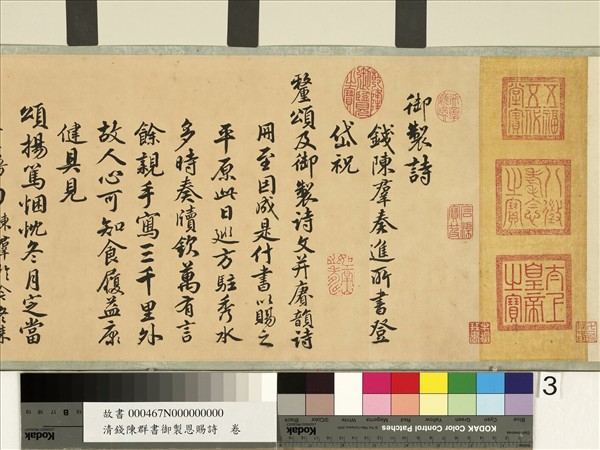 五福五代堂寶
八徵耄念之寶
太上皇帝之寶
御製詩
錢陳羣奏進所書登
岱祝
釐頌及御製詩文并賡韻詩
冊至因成是什書以賜之
平原此日巡方駐秀水
多時奏牘欽萬有言
餘親手寫三千里外
故人心可知食履益康
健具見
頌揚篤悃忱冬月定當
乾隆御覽之寶
故書 000467N000000000
清錢陳群書御製恩賜詩 卷
Kodak
KODAK Color Control Patches
Blue Cyan Green Yellow Red Magenta White 3/Color Black
3